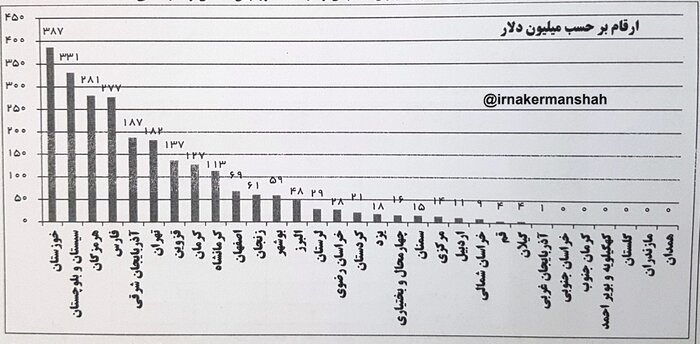 ارقام بر حسب میلیون دلار
@irnakermanshah
۴۵۰
۴۰۰
۳۵۰
۳۰۰
۲۵۰
۲۰۰
۱۵۰
۱۰۰
۵۰
۰
۳۸۷ ۳۳۱ ۲۸۱ ۲۷۷ ۱۸۷ ۱۸۲ ۱۳۷ ۱۲۷ ۱۱۳ ۶۹ ۶۱ ۵۹ ۴۸ ۲۹ ۲۸ ۲۱ ۱۸ ۱۶ ۱۵ ۱۴ ۱۱ ۹ ۴ ۴ ۱ ۰ ۰ ۰ ۰ ۰ ۰
خوزستان
سیستان و بلوچستان
هرمزگان
فارس
آذربایجان شرقی
تهران
قزوین
کرمان
کرمانشاه
اصفهان
زنجان
بوشهر
البرز
لرستان
خراسان رضوی
کردستان
یزد
چهارمحال و بختیاری
سمنان
مرکزی
اردبیل
خراسان شمالی
قم
گیلان
آذربایجان غربی
خراسان جنوبی
کرمان جنوب
کهگیلویه و بویر احمد
گلستان
مازندران
همدان